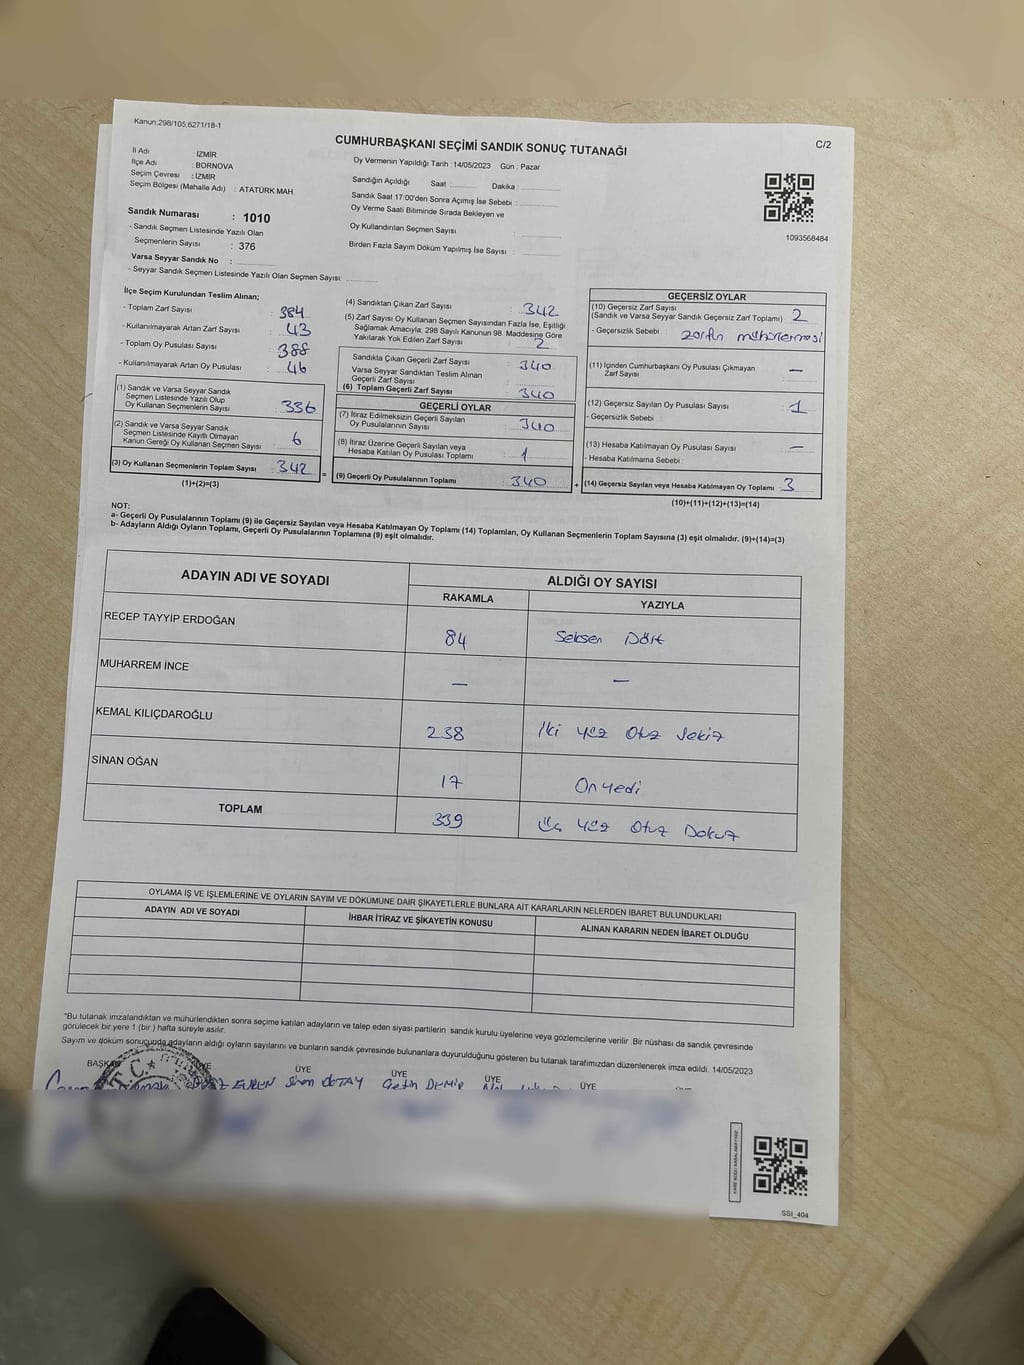 Kanun;298/105;6271/18-1
C/2
CUMHURBAŞKANI SEÇİMİ SANDIK SONUÇ TUTANAĞI
İl Adı : İZMİR
İlçe Adı : BORNOVA
Seçim Çevresi : İZMİR
Seçim Bölgesi (Mahalle Adı) : ATATÜRK MAH.
Sandık Numarası : 1010
- Sandık Seçmen Listesinde Yazılı Olan
Seçmenlerin Sayısı : 376
Varsa Seyyar Sandık No :
- Seyyar Sandık Seçmen Listesinde Yazılı Olan Seçmen Sayısı:
Oy Vermenin Yapıldığı Tarih : 14/05/2023 Gün : Pazar
Sandığın Açıldığı Saat : Dakika :
Sandık Saat 17:00'den Sonra Açımış İse Sebebi :
Oy Verme Saati Bitiminde Sırada Bekleyen ve
Oy Kullandırılan Seçmen Sayısı :
Birden Fazla Sayım Döküm Yapılmış İse Sayısı :
1093568484
İlçe Seçim Kurulundan Teslim Alınan;
- Toplam Zarf Sayısı : 384
- Kullanılmayarak Artan Zarf Sayısı : 43
- Toplam Oy Pusulası Sayısı : 388
- Kullanılmayarak Artan Oy Pusulası : 46
(1) Sandık ve Varsa Seyyar Sandık
Seçmen Listesinde Yazılı Olup
Oy Kullanan Seçmenlerin Sayısı : 336
(2) Sandık ve Varsa Seyyar Sandık
Seçmen Listesinde Kayıtlı Olmayan
Kanun Gereği Oy Kullanan Seçmen Sayısı : 6
(3) Oy Kullanan Seçmenlerin Toplam Sayısı : 342 =
(1)+(2)=(3)
(4) Sandıktan Çıkan Zarf Sayısı : 342
(5) Zarf Sayısı Oy Kullanan Seçmen Sayısından Fazla İse, Eşitliği
Sağlamak Amacıyla; 298 Sayılı Kanunun 98. Maddesine Göre
Yakılarak Yok Edilen Zarf Sayısı : 2
Sandıkta Çıkan Geçerli Zarf Sayısı : 340
Varsa Seyyar Sandıktan Teslim Alınan
Geçerli Zarf Sayısı :
(6) Toplam Geçerli Zarf Sayısı : 340
GEÇERLİ OYLAR
(7) İtiraz Edilmeksizin Geçerli Sayılan
Oy Pusulalarının Sayısı : 340
(8) İtiraz Üzerine Geçerli Sayılan veya
Hesaba Katılan Oy Pusulası Toplamı : 1
(9) Geçerli Oy Pusulalarının Toplamı : 340 +
GEÇERSİZ OYLAR
(10) Geçersiz Zarf Sayısı
(Sandık ve Varsa Seyyar Sandık Geçersiz Zarf Toplamı) : 2
- Geçersizlik Sebebi :
(11) İçinden Cumhurbaşkanı Oy Pusulası Çıkmayan
Zarf Sayısı : —
(12) Geçersiz Sayılan Oy Pusulası Sayısı : 1
- Geçersizlik Sebebi :
(13) Hesaba Katılmayan Oy Pusulası Sayısı : —
- Hesaba Katılmama Sebebi :
(14) Geçersiz Sayılan veya Hesaba Katılmayan Oy Toplamı : 3
(10)+(11)+(12)+(13)=(14)
NOT:
a- Geçerli Oy Pusulalarının Toplamı (9) ile Geçersiz Sayılan veya Hesaba Katılmayan Oy Toplamı (14) Toplamları, Oy Kullanan Seçmenlerin Toplam Sayısına (3) eşit olmalıdır. (9)+(14)=(3)
b- Adayların Aldığı Oyların Toplamı, Geçerli Oy Pusulalarının Toplamına (9) eşit olmalıdır.
ADAYIN ADI VE SOYADI ALDIĞI OY SAYISI
RAKAMLA YAZIYLA
RECEP TAYYİP ERDOĞAN 84 Seksen Dört
MUHARREM İNCE — —
KEMAL KILIÇDAROĞLU 238 İki yüz Otuz Sekiz
SİNAN OĞAN 17 On yedi
TOPLAM 339 Üç yüz Otuz Dokuz
OYLAMA İŞ VE İŞLEMLERİNE VE OYLARIN SAYIM VE DÖKÜMÜNE DAİR ŞİKAYETLERLE BUNLARA AİT KARARLARIN NELERDEN İBARET BULUNDUKLARI
ADAYIN ADI VE SOYADI İHBAR İTİRAZ VE ŞİKAYETİN KONUSU ALINAN KARARIN NEDEN İBARET OLDUĞU
*Bu tutanak imzalandıktan ve mühürlendikten sonra seçime katılan adayların ve talep eden siyasi partilerin sandık kurulu üyelerine veya gözlemcilerine verilir. Bir nüshası da sandık çevresinde
görülecek bir yere 1 (bir ) hafta süreyle asılır.
Sayım ve döküm sonucunda adayların aldığı oyların sayılarını ve bunların sandık çevresinde bulunanlara duyurulduğunu gösteren bu tutanak tarafımızdan düzenlenerek imza edildi. 14/05/2023
BAŞKAN ÜYE ÜYE ÜYE ÜYE ÜYE
EVREN Sinan OKTAY Çetin DEMİR
T.C.
SSI_404